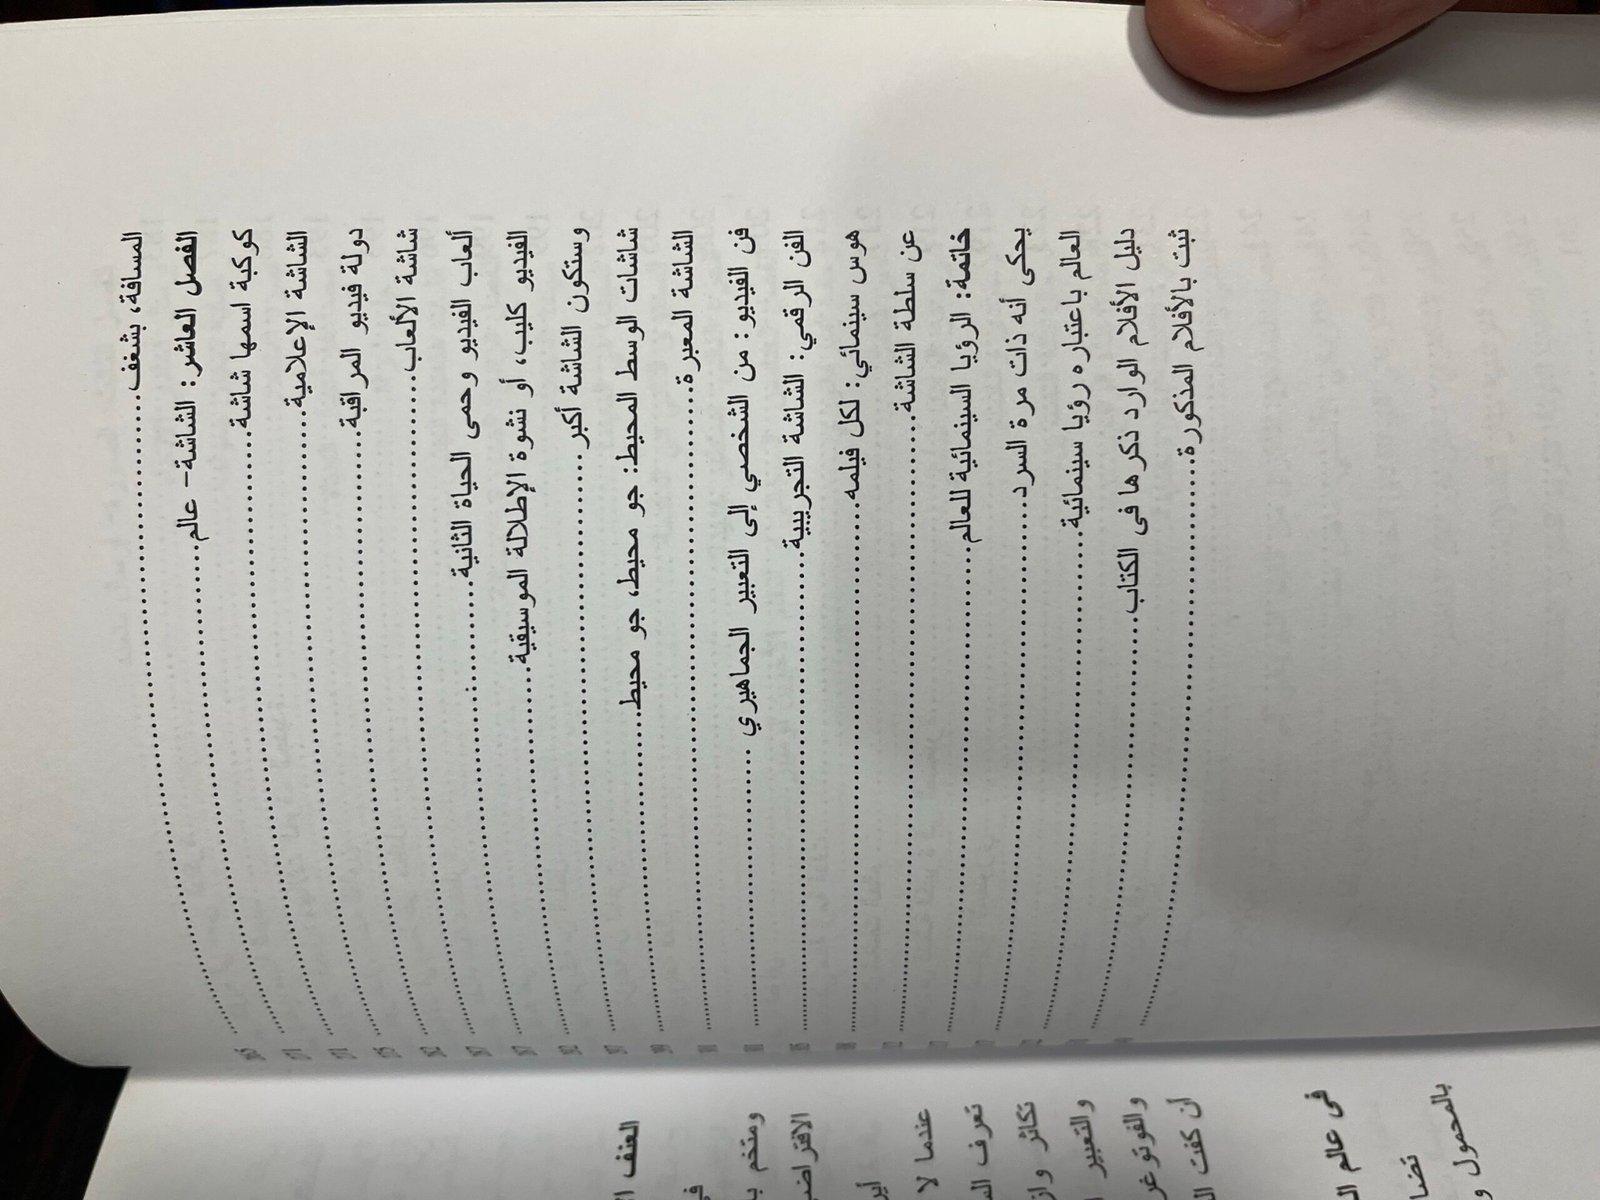 المسافة، بشغف
الفصل العاشر: الشاشة- عالم
كوكبة اسمها شاشة
الشاشة الإعلامية
دولة فيديو المراقبة
شاشة الألعاب
ألعاب الفيديو وحمى الحياة الثانية
الفيديو كليب، أو نشوة الإطلالة الموسيقية
وستكون الشاشة أكبر
شاشات الوسط المحيط: جو محيط، جو محيط
الشاشة المعبرة
فن الفيديو: من الشخصي إلى التعبير الجماهيري
الفن الرقمي: الشاشة التجريبية
هوس سينمائي: لكل فيلمه
عن سلطة الشاشة
خاتمة: الرؤيا السينمائية للعالم
يحكى أنه ذات مرة السرد
العالم باعتباره رؤيا سينمائية
دليل الأفلام الوارد ذكرها فى الكتاب
ثبت بالأفلام المذكورة
العنف
ومتخم
عندما لا
تعرف
تكاثر
والتعبير
أن كفت
فى عالم
بالمحمول و